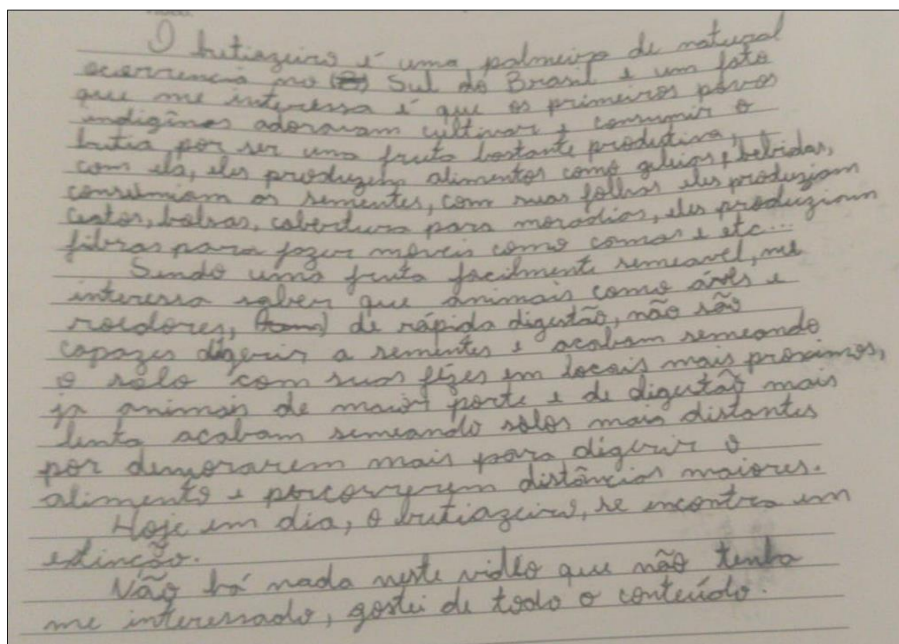 O butiazeiro é uma palmeira de natural
ocorrencia no Sul do Brasil e um fato
que me interessa é que os primeiros povos
indigênas adoravam cultivar e consumir o
butia por ser uma fruta bastante produtiva,
com ela, eles produzem alimentos como geleias, bebidas,
consumiam as sementes, com suas folhas eles produziam
cestos, bolsas, cobertura para moradias, eles produziam
fibras para fazer móveis como camas e etc...
Sendo uma fruta facilmente semeavel, me
interessa saber que animais como áves e
roedores, de rápida digestão, não são
capazes digerir a sementes e acabam semeando
o solo com suas fezes em locais mais proximos,
ja animais de maior porte e de digestão mais
lenta acabam semeando solos mais distantes
por demorarem mais para digerir o
alimento e percorrerem distâncias maiores.
Hoje em dia, o butiazeiro, se encontra em
extinção.
Não há nada neste vidêo que não tenha
me interessado, gostei de todo o conteúdo.